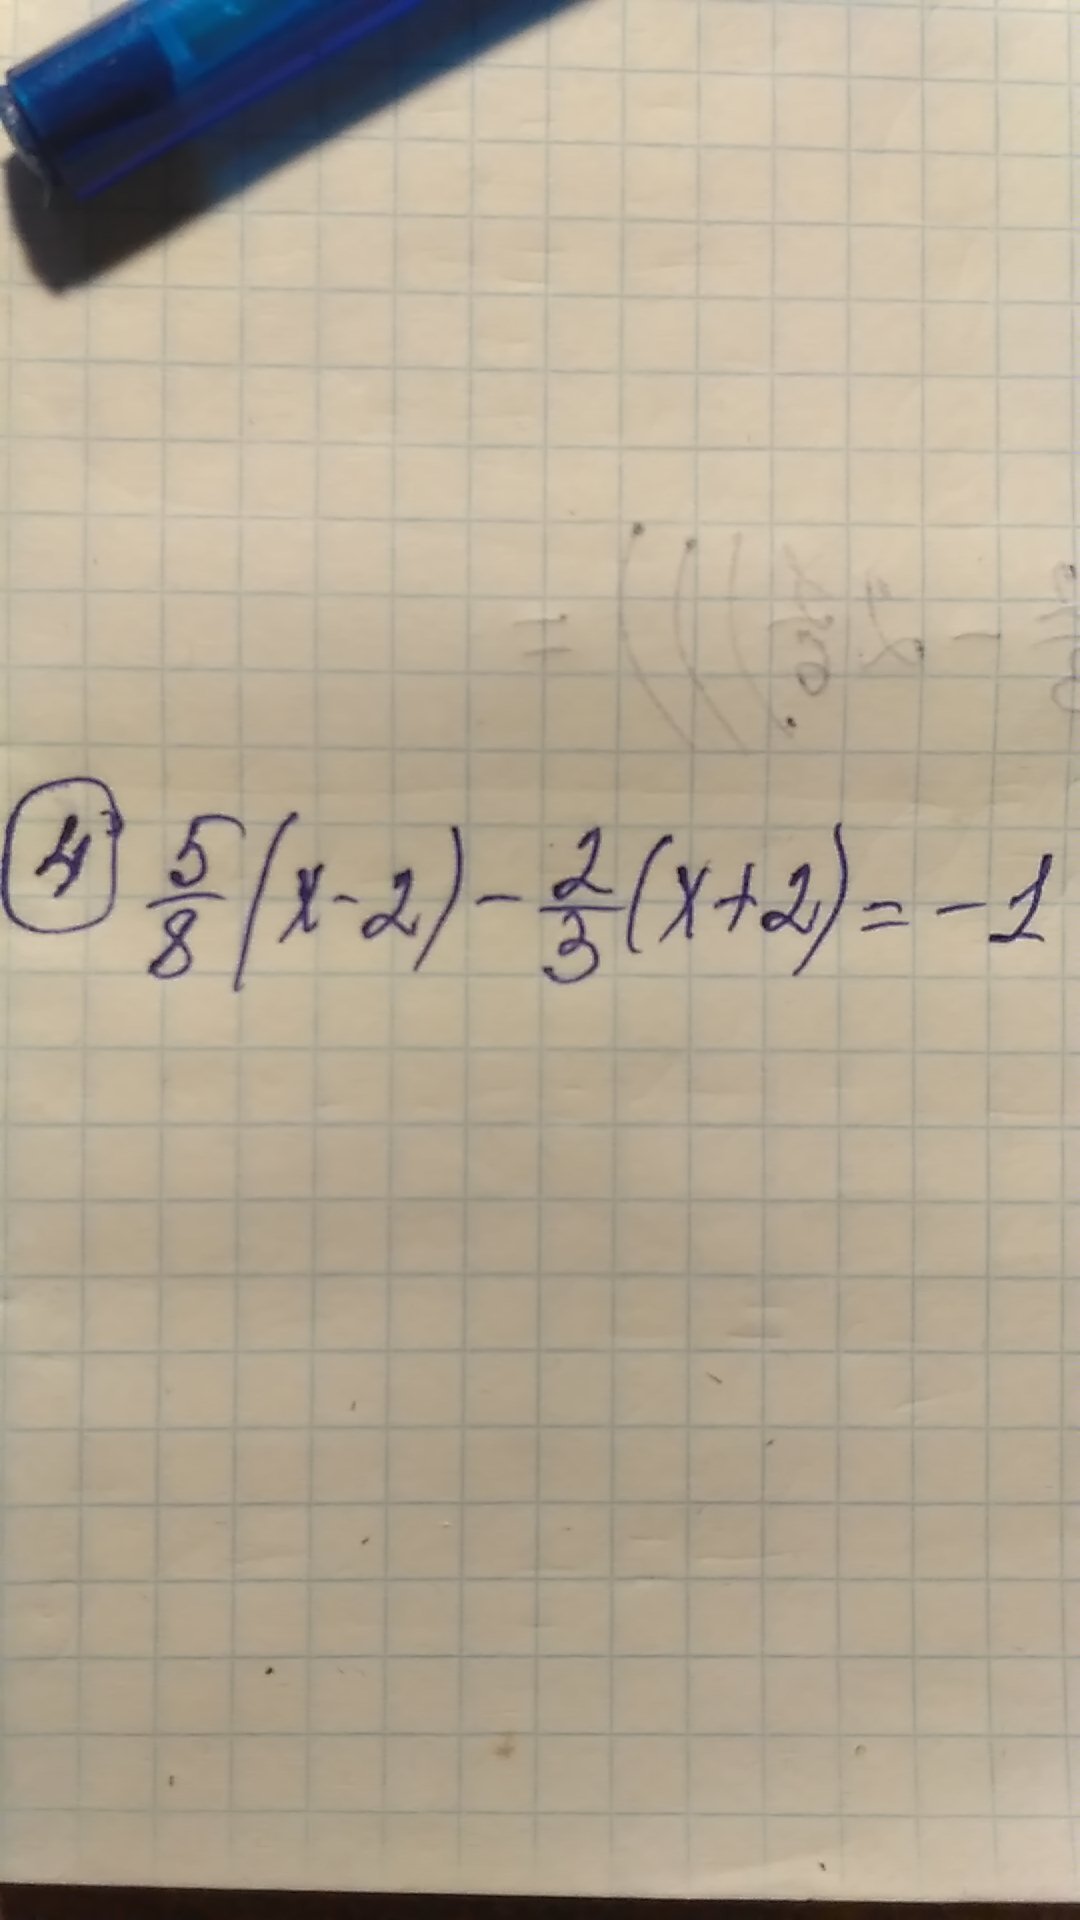 4 5/8 (x-2) - 2/3 (x+2) = -1